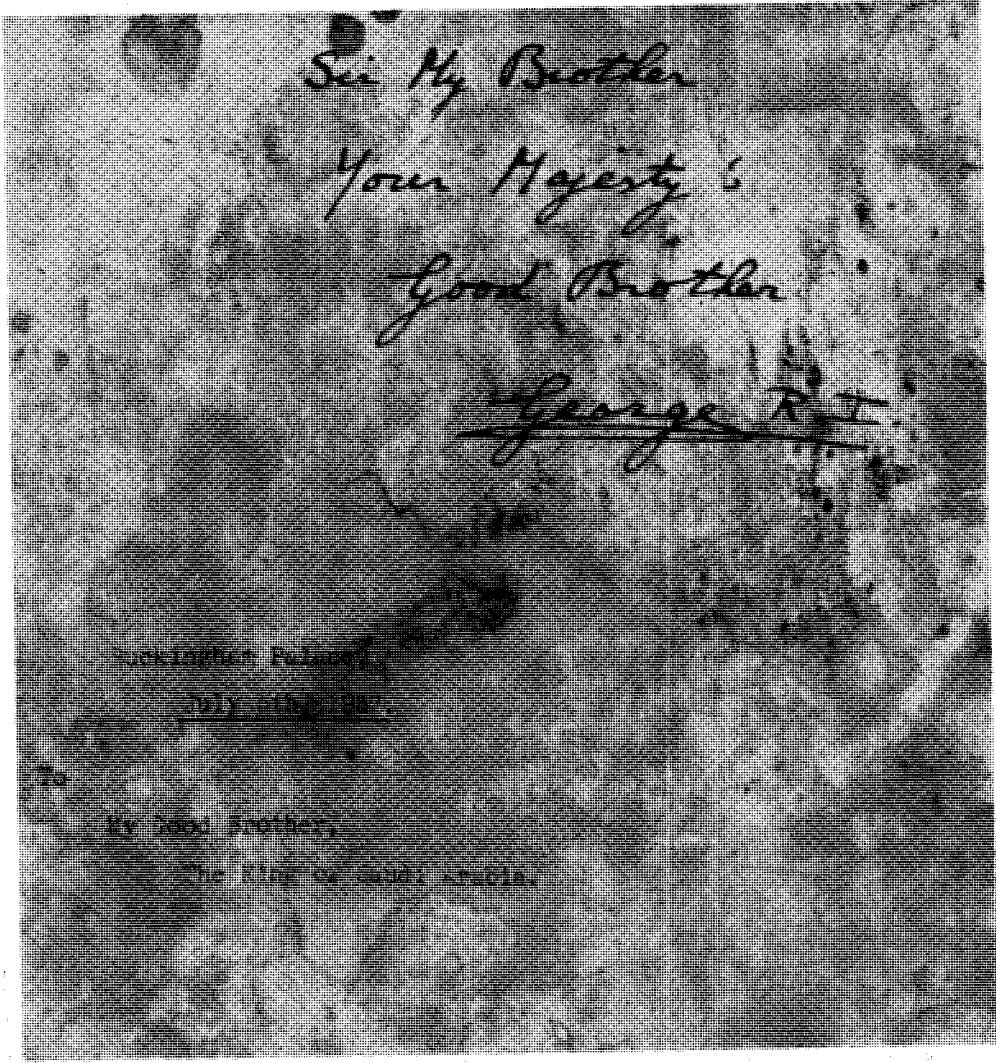 Sir My Brother
Your Majesty's
Good Brother
George R. I.
Buckingham Palace,
July
To
My Good Brother,
The King of Saudi Arabia.